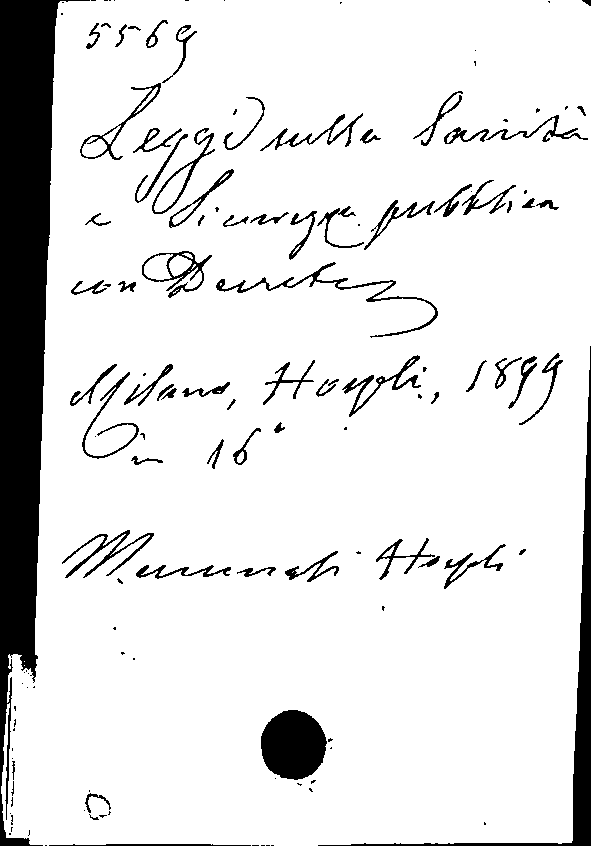 5569
Leggi sulla Sanità
e Sicurezza pubblica
con Decreto
Milano, Hoepli, 1899
in 16°
Manuali Hoepli